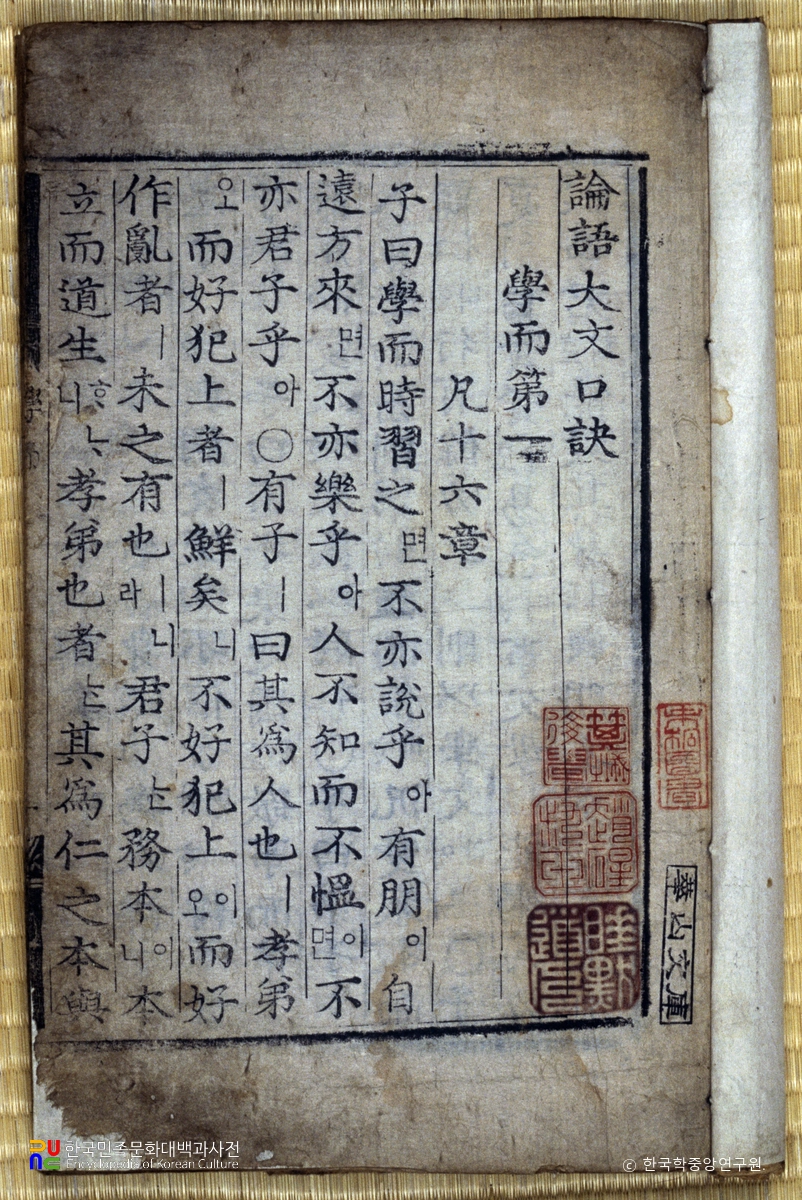 論語大文口訣
學而第一
凡十六章
子曰學而時習之면不亦說乎아有朋이自
遠方來면不亦樂乎아人不知而不慍이면不
亦君子乎아○有子ㅣ曰其爲人也ㅣ孝弟
오而好犯上者ㅣ鮮矣니不好犯上이오而好
作亂者ㅣ未之有也ㅣ니라君子는務本이니本
立而道生ᄒᆞᄂᆞ니孝弟也者는其爲仁之本與
華山文庫
한국민족문화대백과사전
Encyclopedia of Korean Culture
© 한국학중앙연구원